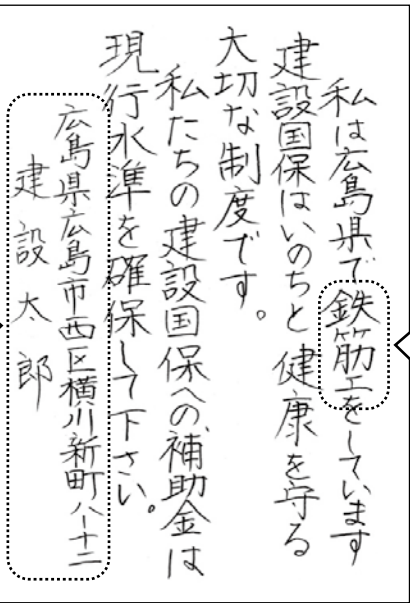 私は広島県で鉄筋工をしています
建設国保はいのちと健康を守る
大切な制度です。
私たちの建設国保への補助金は
現行水準を確保して下さい。
広島県広島市西区横川新町八ー十二
建設太郎